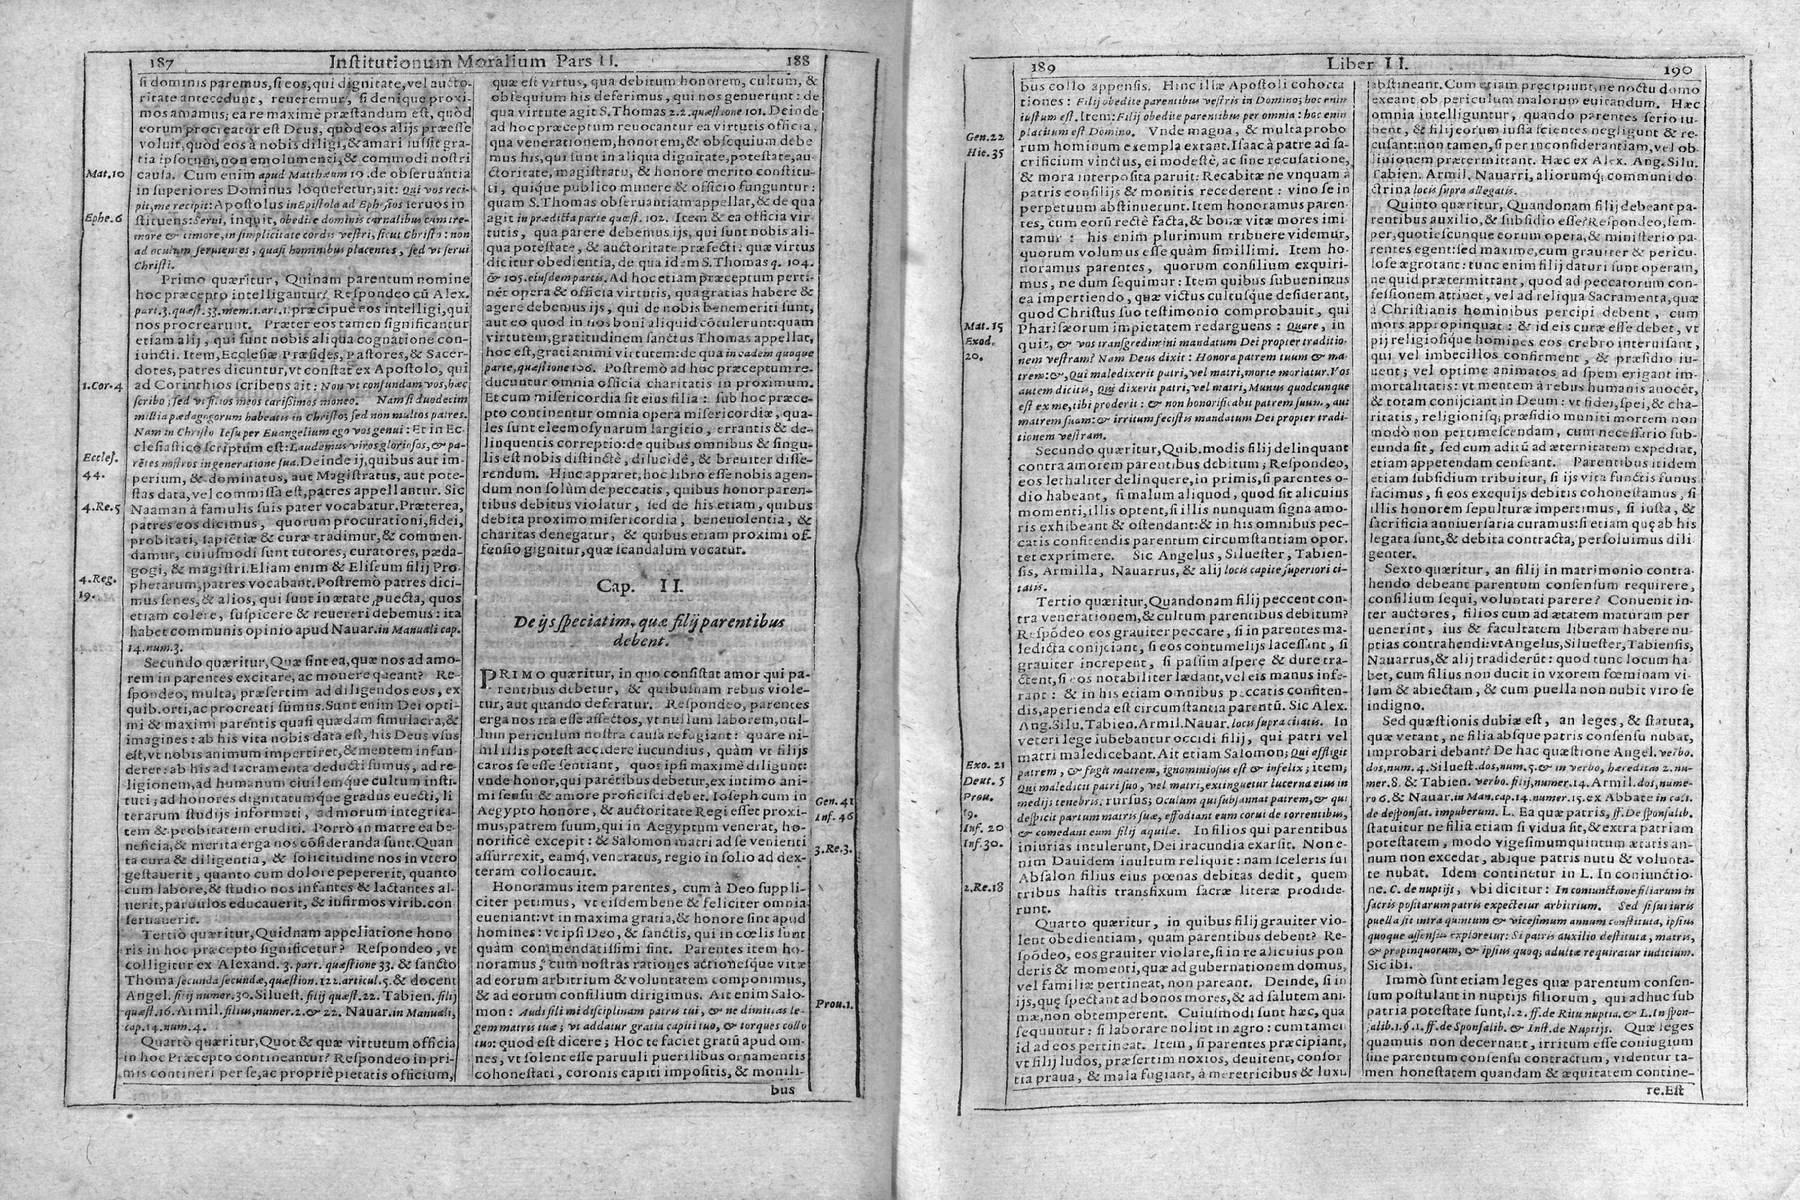 187 Institutionum Moralium Pars II. 188
si dominis paremus, si eos, qui dignitate, vel aucto-
ritate antecedunt, reueremur, si denique proxi-
mos amamus; ea re maximè præstandum est, quòd
eorum procreator est Deus, quòd eos alijs præesse
voluit, quòd eos à nobis diligi, & amari iussit gra-
tia ipsorum, non emolumenti, & commodi nostri
causa. Cum enim apud Matthæum 10. de obseruātia
Mat.10
in superiores Dominus loqueretur, ait: Qui vos reci-
pit, me recipit: Apostolus in Epistola ad Ephesios seruos in
stituens: Serui, inquit, obedite dominis carnalibus cum tre-
Ephe.6
more & timore, in simplicitate cordis vestri, sicut Christo: non
ad oculum seruientes, quasi hominibus placentes, sed vt serui
Christi.
Primo quæritur, Quinam parentum nomine
hoc præcepto intelligantur? Respondeo cū Alex.
part.3. quæst.33. mem.1. art.1. præcipuè eos intelligi, qui
nos procrearunt. Præter eos tamen significantur
etiam alij, qui sunt nobis aliqua cognatione con-
iuncti. Item, Ecclesiæ Præsides, Pastores, & Sacer-
dotes, patres dicuntur, vt constat ex Apostolo, qui
ad Corinthios scribens ait: Non vt confundam vos, hæc
1.Cor.4
scribo; sed vt filios meos carissimos moneo. Nam si duodecim
millia pædagogorum habeatis in Christo; sed non multos patres.
Nam in Christo Iesu per Euangelium ego vos genui: Et in Ec-
clesiastico scriptum est: Laudemus viros gloriosos, & pa-
Eccles.
44.
rētes nostros in generatione sua. Deinde ij, quibus aut im-
perium, & dominatus, aut Magistratus, aut pote-
stas data, vel commissa est, patres appellantur. Sic
Naaman à famulis suis pater vocabatur. Præterea,
4.Re.5
patres eos dicimus, quorum procurationi, fidei,
probitati, sapiētiæ & curæ tradimur, & commen-
damur, cuiusmodi sunt tutores, curatores, pæda-
gogi, & magistri. Eliam enim & Eliseum filij Pro-
phetarum, patres vocabant. Postremò patres dici-
4.Reg.
19.
mus senes, & alios, qui sunt in ætate puecta, quos
etiam colere, suspicere & reuereri debemus: ita
habet communis opinio apud Nauar. in Manuali cap.
14. num.3.
Secundo quæritur, Quæ sint ea, quæ nos ad amo-
rem in parentes excitare, ac mouere queant? Re-
spondeo, multa, præsertim ad diligendos eos, ex
quib. orti, ac procreati sumus. Sunt enim Dei opti-
mi & maximi parentis quasi quædam simulacra, &
imagines: ab his vita nobis data est, his Deus vsus
est, vt nobis animum impertiret, & mentem infun-
deret: ab his ad sacramenta deducti sumus, ad re-
ligionem, ad humanum ciuilemque cultum insti-
tuti; ad honores dignitatumque gradus euecti, li
terarum studijs informati, ad morum integrita-
tem & probitatem eruditi. Porrò in matre ea be-
neficia, & merita erga nos cōsideranda sunt. Quan
ta cura & diligentia, & solicitudine nos in vtero
gestauerit, quanto cum dolore pepererit, quanto
cum labore, & studio nos infantes & lactantes al-
uerit, paruulos educauerit, & infirmos virib. con
seruauerit.
Tertiò quæritur, Quidnam appellatione hono
ris in hoc præcepto significetur? Respondeo, vt
colligitur ex Alexand. 3. part. quæstione 33. & sancto
Thoma secunda secundæ, quæstion.122. articul.5. & docent
Angel. filij numer.30. Siluest. filij quæst.22. Tabien. filij
quæst.16. Armil. filius, numer.2. & 22. Nauar. in Manuali,
cap.14. num.4.
Quartò quæritur, Quot & quæ virtutum officia
in hoc Præcepto contineantur? Respondeo in pri-
mis contineri per se, ac propriè pietatis officium,
quæ est virtus, qua debitum honorem, cultum, &
obsequium his deferimus, qui nos genuerunt: de
qua virtute agit S. Thomas 2.2. quæstione 101. Deinde
ad hoc præceptum reuocantur ea virtutis officia,
qua venerationem, honorem, & obsequium debe
mus his, qui sunt in aliqua dignitate, potestate, au-
ctoritate, magistratu, & honore merito constitu-
ti, quique publico munere & officio funguntur:
quam S. Thomas obseruantiam appellat, & de qua
agit in prædicta parte quæst. 102. Item & ea officia vir-
tutis, qua parere debemus ijs, qui sunt nobis ali-
qua potestate, & auctoritate præfecti: quæ virtus
dicitur obedientia, de qua idem S. Thomas q. 104.
& 105. eiusdem partis. Ad hoc etiam præceptum perti-
nēt opera & officia virtutis, qua gratias habere &
agere debemus ijs, qui de nobis benemeriti sunt,
aut eo quod in nos boni aliquid cōtulerunt: quam
virtutem, gratitudinem sanctus Thomas appellat,
hoc est, grati animi virtutem: de qua in eadem quoque
parte, quæstione 106. Postremò ad hoc præceptum re-
ducuntur omnia officia charitatis in proximum.
Et cum misericordia sit eius filia: sub hoc præ-
cepto continentur omnia opera misericordiæ, qua-
les sunt eleemosynarum largitio, errantis & de-
linquentis correptio: de quibus omnibus & singu-
lis est nobis distinctè, dilucidè, & breuiter disse-
rendum. Hinc apparet, hoc libro esse nobis agen-
dum non solùm de peccatis, quibus honor paren-
tibus debitus violatur, sed de his etiam, quibus
debita proximo misericordia, beneuolentia, &
charitas denegatur, & quibus etiam proximi of-
fensio gignitur, quæ scandalum vocatur.
Cap. II.
De ijs speciatim, quæ filij parentibus
debent.
PRIMO quæritur, in quo consistat amor qui pa-
rentibus debetur, & quibusnam rebus viole-
tur, aut quando deferatur. Respondeo, parentes
erga nos ita esse affectos, vt nullum laborem, nul-
lum periculum nostra causa refugiant: quare ni-
hil illis potest accidere iucundius, quàm vt filijs
caros se esse sentiant, quos ipsi maximè diligunt:
vnde honor, qui parētibus debetur, ex intimo ani-
mi sensu & amore proficisci debet. Ioseph cum in
Gen.41
Inf. 46
Aegypto honore, & auctoritate Regi esset proxi-
mus, patrem suum, qui in Aegyptum venerat, ho-
norificè excepit: & Salomon matri ad se venienti
3.Re.3.
assurrexit, eamq, veneratus, regio in solio ad dex-
teram collocauit.
Honoramus item parentes, cum à Deo suppli-
citer petimus, vt eisdem bene & feliciter omnia
eueniant: vt in maxima gratia, & honore sint apud
homines: vt ipsi Deo, & sanctis, qui in cœlis sunt
quàm commendatissimi sint. Parentes item ho-
noramus, cum nostras rationes actionesque vitæ
ad eorum arbitrium & voluntatem componimus,
& ad eorum consilium dirigimus. Ait enim Salo-
mon: Audi fili mi disciplinam patris tui, & ne dimittas le-
Prou.1.
gem matris tuæ; vt addatur gratia capiti tuo, & torques collo
tuo: quod est dicere; Hoc te faciet gratū apud om-
nes, vt solent esse paruuli puerilibus ornamentis
cohonestati, coronis capiti impositis, & monili-
bus
189 Liber II. 190
bus collo appensis. Hinc illæ Apostoli cohorta
tiones: Filij obedite parentibus vestris in Domino; hoc enim
iustum est. Item: Filij obedite parentibus per omnia: hoc enim
placitum est Domino. Vnde magna, & multa probo
Gen.22
rum hominum exempla extant. Isaac à patre ad sa-
Hie.35
crificium vinctus, ei modestè, ac sine recusatione,
& mora interposita paruit: Recabitæ ne vnquam à
patris consilijs & monitis recederent: vino se in
perpetuum abstinuerunt. Item honoramus paren-
tes, cum eorū rectè facta, & bonæ vitæ mores imi
tamur: his enim plurimum tribuere videmur,
quorum volumus esse quàm simillimi. Item ho-
noramus parentes, quorum consilium exquiri-
mus, ne dum sequimur: Item quibus subuenimus
ea impertiendo, quæ victus cultusque desiderant,
quod Christus suo testimonio comprobauit, qui
Mat.15
Exod.
20.
Pharisæorum impietatem redarguens: Quare, in
quit, & vos transgredimini mandatum Dei propter traditio-
nem vestram? Nam Deus dixit: Honora patrem tuum & ma-
trem: &, Qui maledixerit patri, vel matri, morte moriatur. Vos
autem dicitis, Qui dixerit patri, vel matri, Munus quodcunque
est ex me, tibi proderit: & non honorificabit patrem suum, aut
matrem suam: & irritum fecistis mandatum Dei propter tradi
tionem vestram.
Secundo quæritur, Quib. modis filij delinquant
contra amorem parentibus debitum; Respondeo,
eos lethaliter delinquere, in primis, si parentes o-
dio habeant, si malum aliquod, quod sit alicuius
momenti, illis optent, si illis nunquam signa amo-
ris exhibeant & ostendant: & in his omnibus pec-
catis confitendis parentum circumstantiam opor-
tet exprimere. Sic Angelus, Siluester, Tabien-
sis, Armilla, Nauarrus, & alij locis capite superiori ci-
tatis.
Tertio quæritur, Quandonam filij peccent con-
tra venerationem, & cultum parentibus debitum?
Respōdeo eos grauiter peccare, si in parentes ma-
ledicta conijciant, si eos contumelijs lacessant, si
grauiter increpent, si passim asperè & dure tra-
ctent, si eos notabiliter lædant, vel eis manus infe-
rant: & in his etiam omnibus peccatis confiten-
dis, aperienda est circumstantia parentū. Sic Alex.
Ang. Silu. Tabien. Armil. Nauar. locis supra citatis. In
veteri lege iubebantur occidi filij, qui patri vel
matri maledicebant. Ait etiam Salomon; Qui affligit
Exo. 21
patrem, & fugit matrem, ignominiosus est & infelix; item;
Deut. 5
Prou.
19.
Inf. 20
Inf. 30.
Qui maledicit patri suo, vel matri, extinguetur lucerna eius in
medijs tenebris. rursus; Oculum qui subsannat patrem, & qui
despicit partum matris suæ, effodiant eum corui de torrentibus,
& comedant eum filij aquilæ. In filios qui parentibus
iniurias intulerunt, Dei iracundia exarsit. Non e-
nim Dauidem inultum reliquit: nam sceleris sui
Absalon filius eius pœnas debitas dedit, quem
2.Re.18
tribus hastis transfixum sacræ literæ prodide-
runt.
Quarto quæritur, in quibus filij grauiter vio-
lent obedientiam, quam parentibus debent? Re-
spōdeo, eos grauiter violare, si in re alicuius pon
deris & momenti, quæ ad gubernationem domus,
vel familiæ pertineat, non pareant. Deinde, si in
ijs, quę spectant ad bonos mores, & ad salutem ani-
mæ, non obtemperent. Cuiusmodi sunt hæc, qua
sequuntur: si laborare nolint in agro: cum tamen
id ad eos pertineat. Item, si parentes præcipiant,
vt filij ludos, præsertim noxios, deuitent, consor
tia praua, & mala fugiant, à meretricibus & luxu
abstineant. Cum etiam præcipiunt, ne noctu domo
exeant ob periculum malorum euitandum. Hæc
omnia intelliguntur, quando parentes serio iu-
bent, & filij eorum iussa scientes negligunt & re-
cusant: non tamen, si per inconsiderantiam, vel ob
liuionem prætermittant. Hæc ex Alex. Ang. Silu.
Tabien. Armil. Nauarri, aliorumq; communi do
ctrina locis supra allegatis.
Quinto quæritur, Quandonam filij debeant pa-
rentibus auxilio, & subsidio esse? Respondeo, sem-
per, quotiescunque eorum opera, & ministerio pa-
rentes egent: sed maxime, cum grauiter & pericu-
lose ægrotant: tunc enim filij daturi sunt operam,
ne quid prætermittant, quod ad peccatorum con-
fessionem attinet, vel ad reliqua Sacramenta, quæ
à Christianis hominibus percipi debent, cum
mors appropinquat: & id eis curæ esse debet, vt
pij religiosique homines eos crebro interuisant,
qui vel imbecillos confirment, & præsidio iu-
uent; vel optime animatos ad spem erigant im-
mortalitatis: vt mentem à rebus humanis auocēt,
& totam conijciant in Deum: vt fidei, spei, & cha-
ritatis, religionisq; præsidio muniti mortem non
modò non pertimescendam, cum necessario sub-
eunda sit, sed eum aditū ad æternitatem expediat,
etiam appetendam censeant. Parentibus itidem
etiam subsidium tribuitur, si ijs vita functis funus
facimus, si eos exequijs debitis cohonestamus, si
illis honorem sepulturæ impertimus, si iusta, &
sacrificia anniuersaria curamus: si etiam quę ab his
legata sunt, & debita contracta, persoluimus dili
genter.
Sexto quæritur, an filij in matrimonio contra-
hendo debeant parentum consensum requirere,
consilium sequi, voluntati parere? Conuenit in-
ter auctores, filios cum ad ætatem maturam per
uenerint, ius & facultatem liberam habere nu-
ptias contrahendi: vt Angelus, Siluester, Tabiensis,
Nauarrus, & alij tradiderūt: quod tunc locum ha-
bet, cum filius non ducit in vxorem fœminam vi-
lam & abiectam, & cum puella non nubit viro se
indigno.
Sed quæstionis dubiæ est, an leges, & statuta,
quæ vetant, ne filia absque patris consensu nubat,
improbari debant? De hac quæstione Angel. verbo.
dos, num.4. Siluest. dos, num.5. & in verbo, hæreditas 2. nu-
mer.8. & Tabien. verbo. filij, numer.14. Armil. dos, nume-
ro 6. & Nauar. in Man. cap.14. numer.15. ex Abbate in ca.1.
de desponsat. impuberum. L. Ea quæ patris, ff. De sponsalib.
statuitur ne filia etiam si vidua sit, & extra patriam
potestatem, modo vigesimumquintum ætatis an-
num non excedat, absque patris nutu & volunta-
te nubat. Idem continetur in L. In coniunctio-
ne. C. de nuptijs, vbi dicitur: In coniunctione filiarum in
sacris positarum patris expectetur arbitrium. Sed si sui iuris
puella sit intra quintum & vicesimum annum constituta, ipsius
quoque assensus exploretur: Si patris auxilio destituta, matris,
& propinquorum, & ipsius quoq; adultæ requiratur iudicium.
Sic ibi.
Immò sunt etiam leges quæ parentum consen-
sum postulant in nuptijs filiorum, qui adhuc sub
patria potestate sunt, l.2. ff. de Ritu nuptia. & L. In spon-
salib. 1. §.1. ff. de Sponsalib. & Inst. de Nuptijs. Quæ leges
quamuis non decernant, irritum esse coniugium
sine parentum consensu contractum, videntur ta-
men honestatem quandam & æquitatem contine-
re. Est